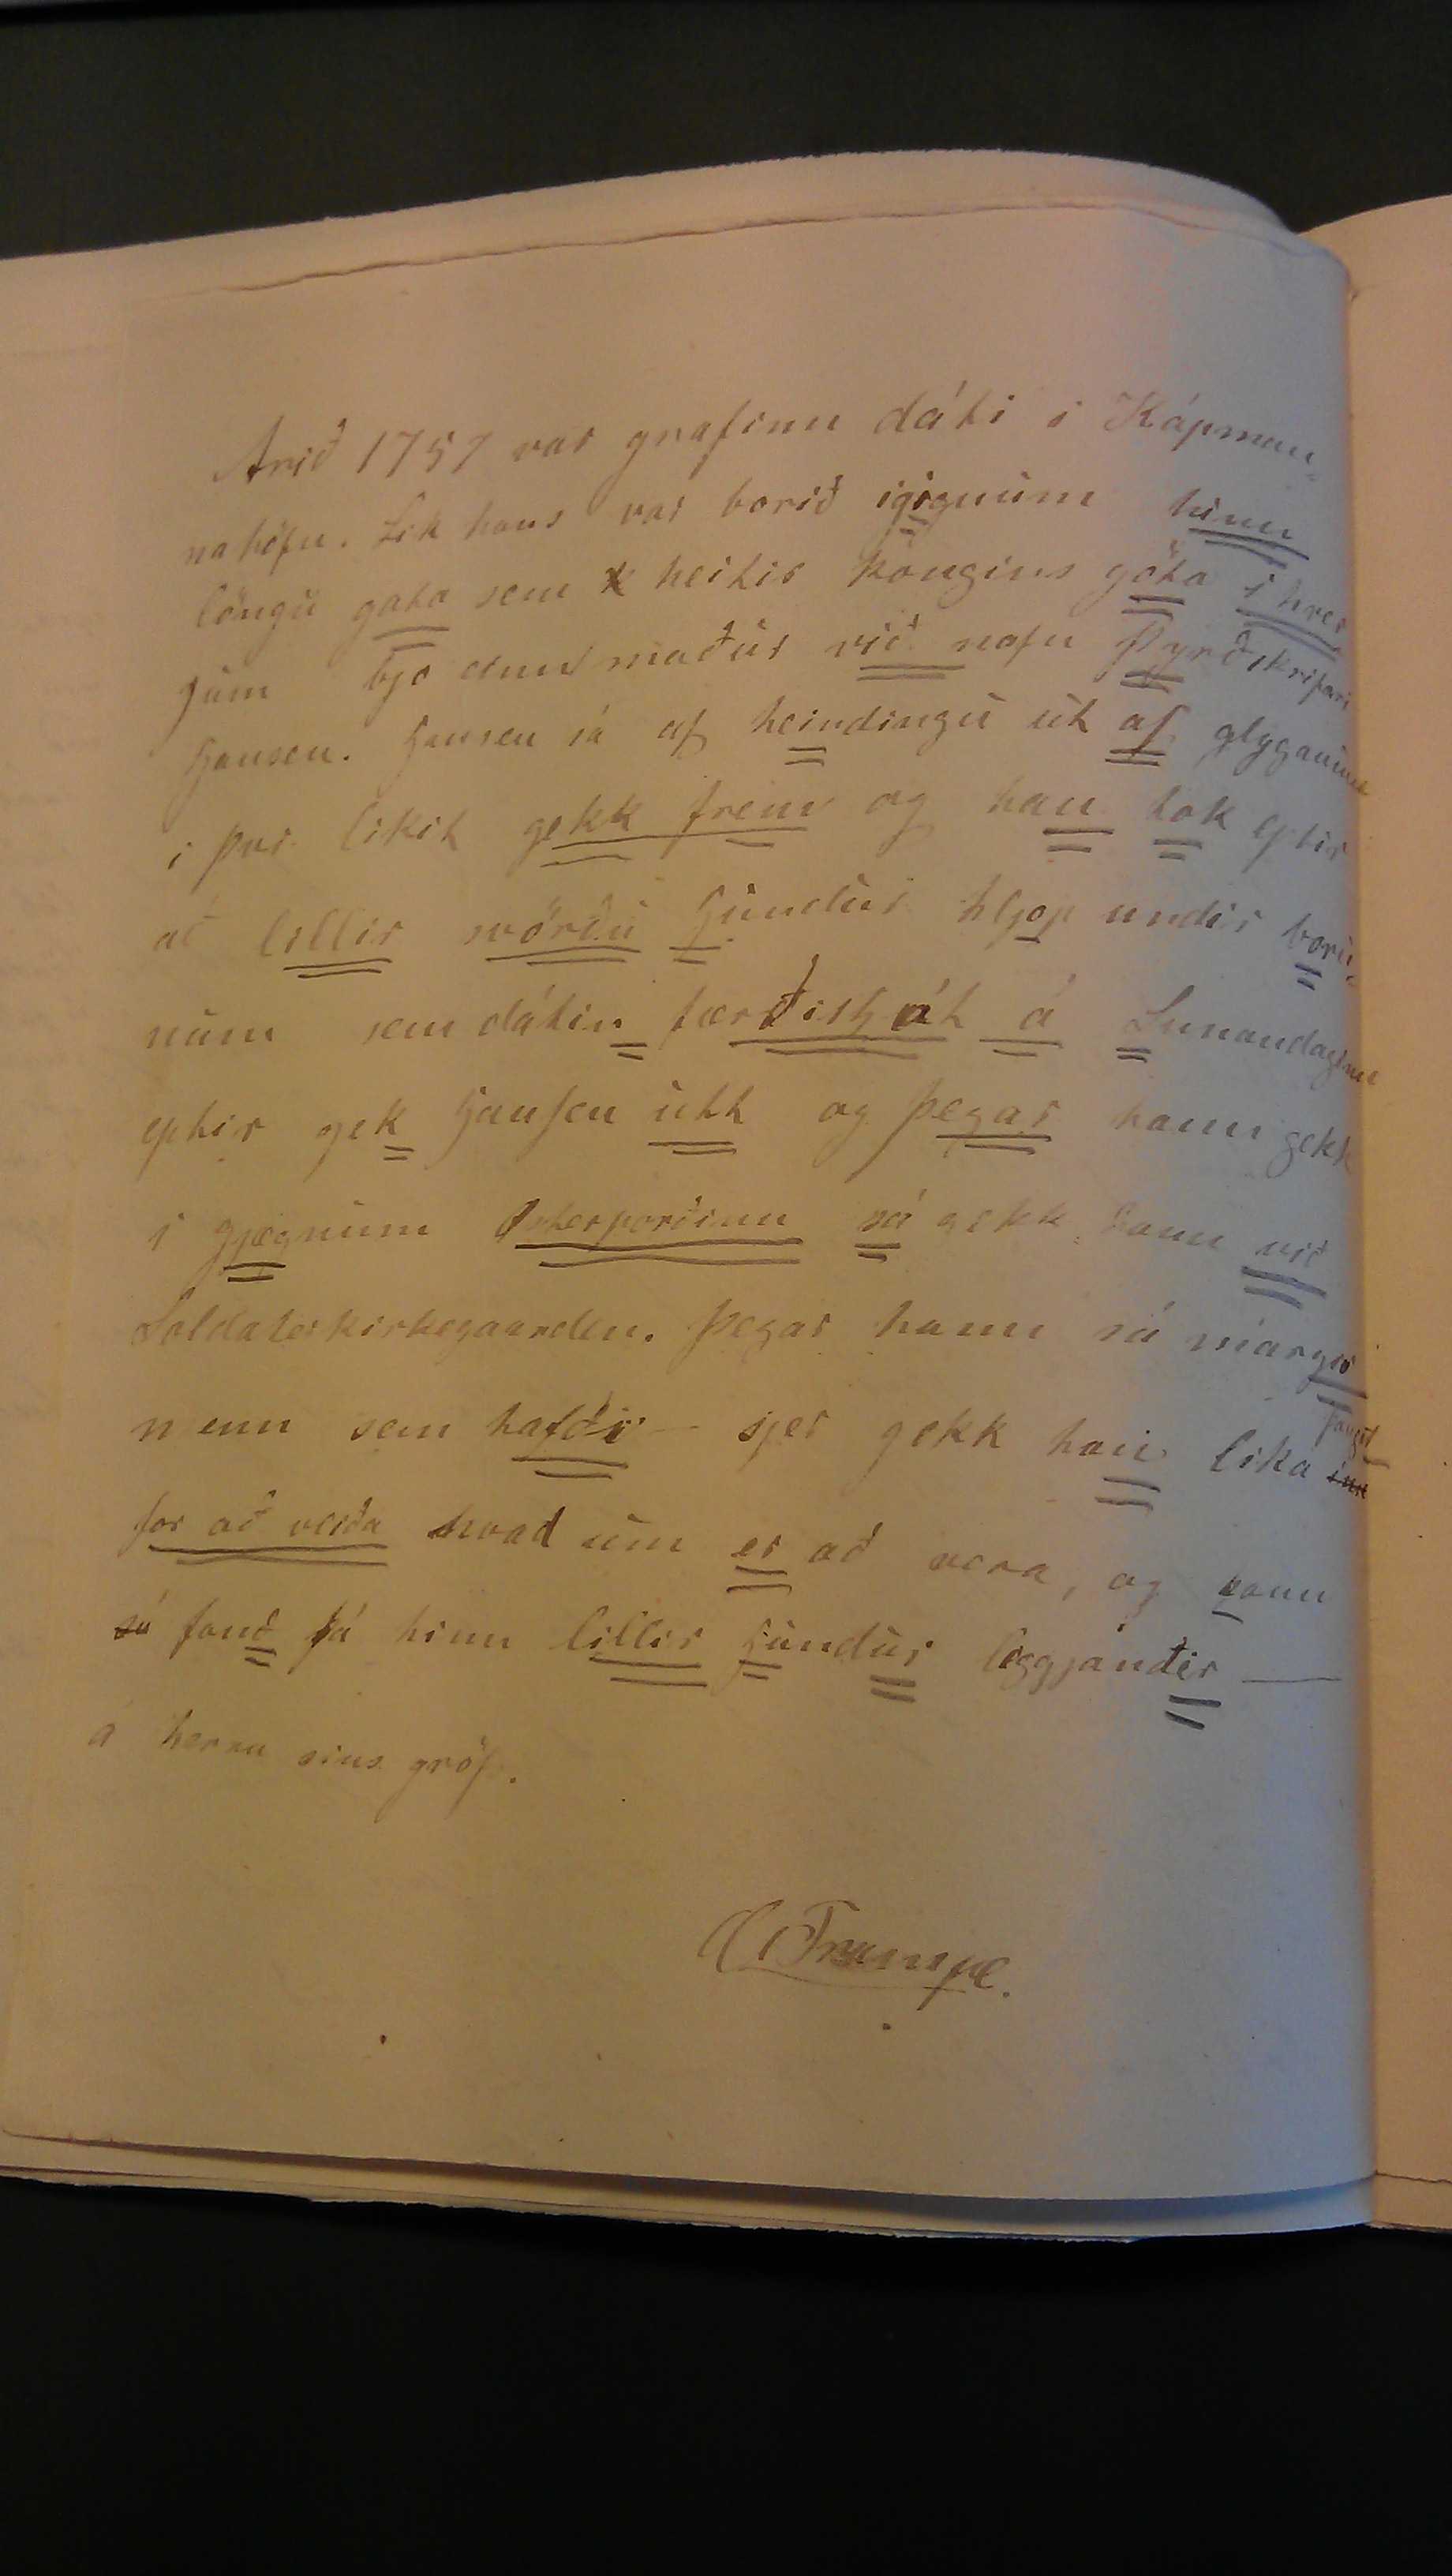 Arið 1757 var grafinn dáti i Kápman-
nahöfn. Lik hans var borið igignum hinn
löngu gata sem heitir kongins göta i hver
jum bjo einn maður við nafn Þyrðskrifari
Hansen. Hansen sá af heindingu út af glyganum
i þvi likit gekk frem og han tok eptir
at lillir svörðu Hundur hljop undir boru-
num sem dátin færðist át á Sunandaginn
eptir gek Hansen útt og þegar hann gekk
i gjægnum Østerporðinn sá gekk hann við
Soldaterkirkegaarden. Þegar hann sá margir
menn sem hafðir sjer gekk han lika þangt
for að verða hvad um er að vera, og hann
så fanð þá hinn lillir Hundur liggjanðir
á herra sins gröf.
Trampe.